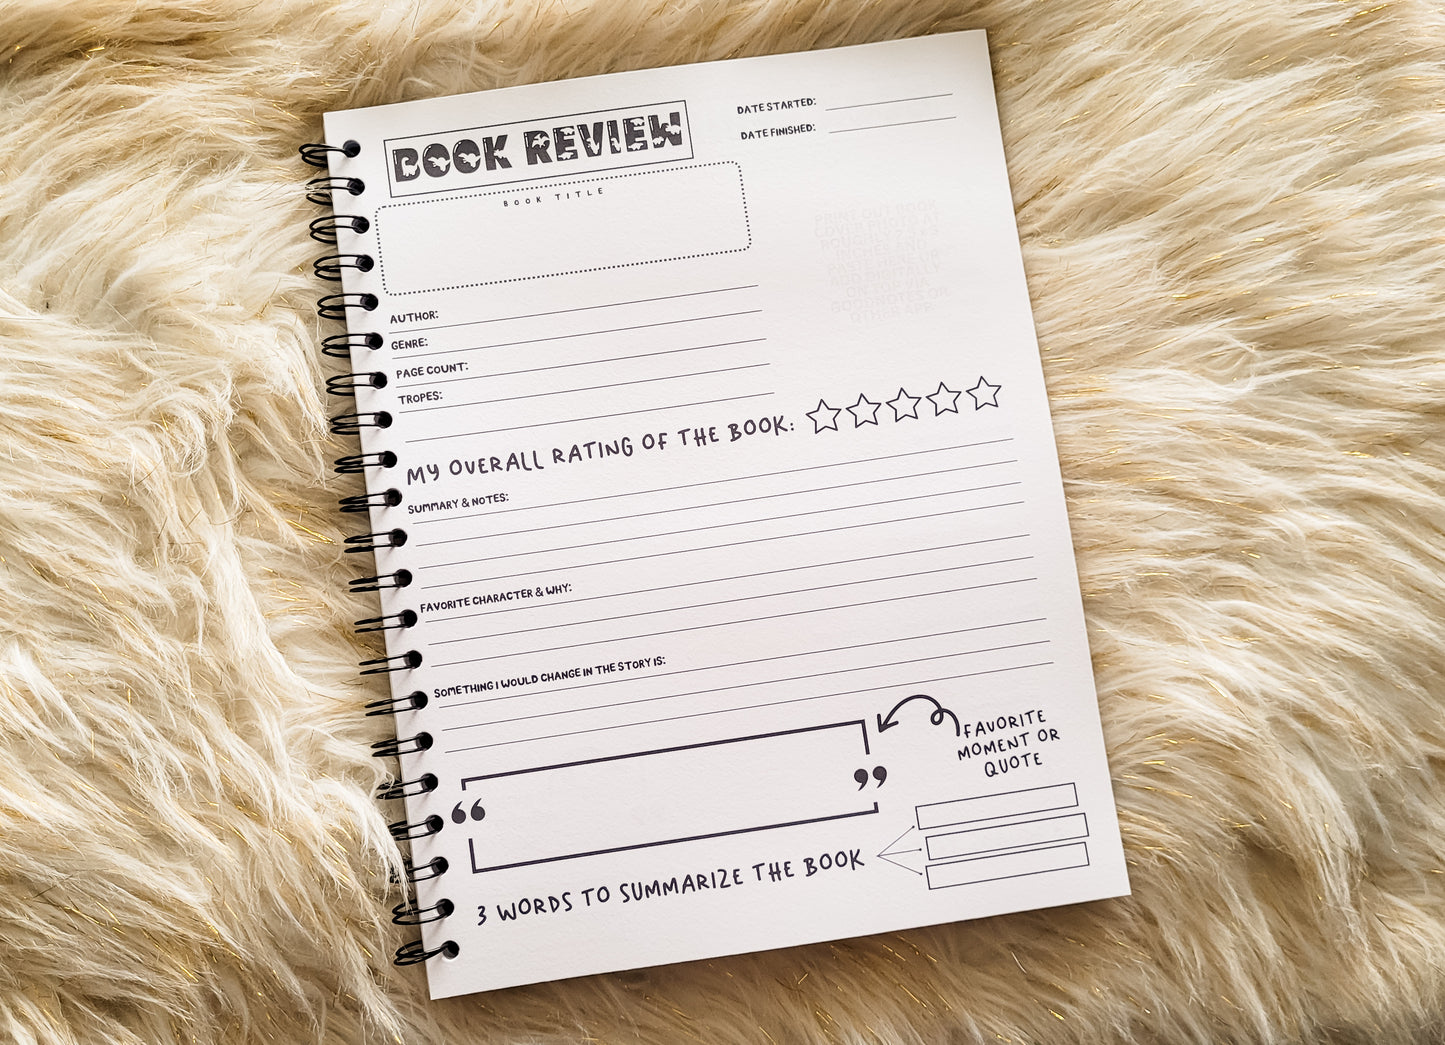 BOOK REVIEW
DATE STARTED:
DATE FINISHED:
BOOK TITLE
PRINT OUT BOOK
COVER PHOTO AT
ROUGHLY
INCHES AND
PASTE HERE OR
ADD DIGITALLY
ON TOP VIA
GOODNOTES OR
OTHER APP
AUTHOR:
GENRE:
PAGE COUNT:
TROPES:
MY OVERALL RATING OF THE BOOK:
SUMMARY & NOTES:
FAVORITE CHARACTER & WHY:
SOMETHING I WOULD CHANGE IN THE STORY IS:
FAVORITE
MOMENT OR
QUOTE
“ ”
3 WORDS TO SUMMARIZE THE BOOK